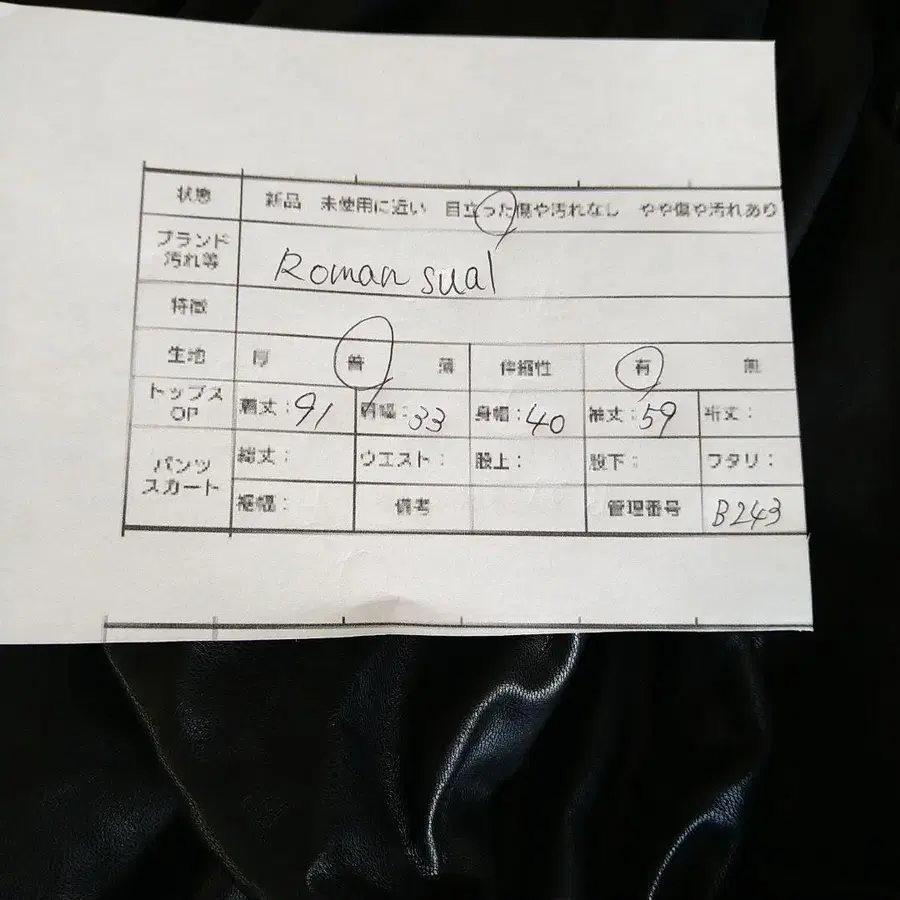 状態 新品 未使用に近い 目立った傷や汚れなし やや傷や汚れあり
ブランド
汚れ等
Roman sual
特徴
生地 厚 普 薄 伸縮性 有 無
トップス
OP
着丈：91 肩幅：33 身幅：40 袖丈：59 裄丈：
パンツ
スカート
総丈： ウエスト： 股上： 股下： ワタリ：
裾幅： 備考 管理番号 B243